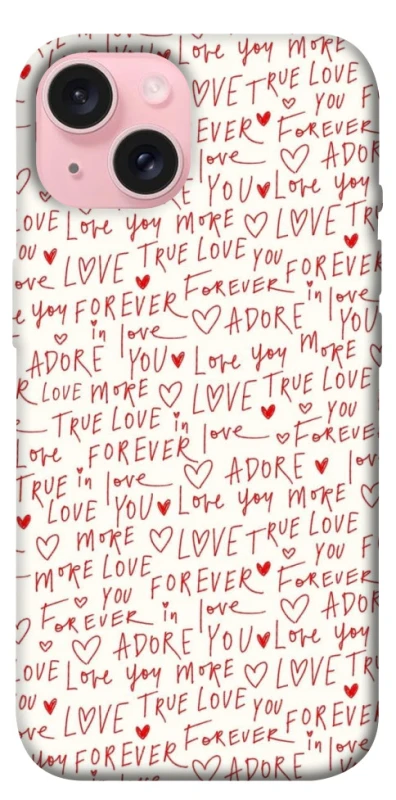 Love you more
LOVE TRUE LOVE
YOU
EVER FOREVER
love ADOR
YOU Love you
LOVE Love you more LOVE TR
TRUE LOVE you
ove LOVE FOREVER
FOREVER
e you FOREVER in love
in love ADORE YOU
ADORE YOU Love you more
R LOVE more LOVE TRUE LOVE
TRUE LOVE in love YOU
FOREVE
Love FOREVER
TRUE in love ADORE lov
LOVE YOU Love you more
more LOVE TRUE LOVE
YOU F
more LOVE YOU FOREVER FOREVER
FOREVER in love ADOR
ADORE YOU Love you
LOVE Love you more LOVE TR
TRUE LOVE you
ove LOVE FOREVER
FOREVER
you FOREVER in love
in love ADORE YOU